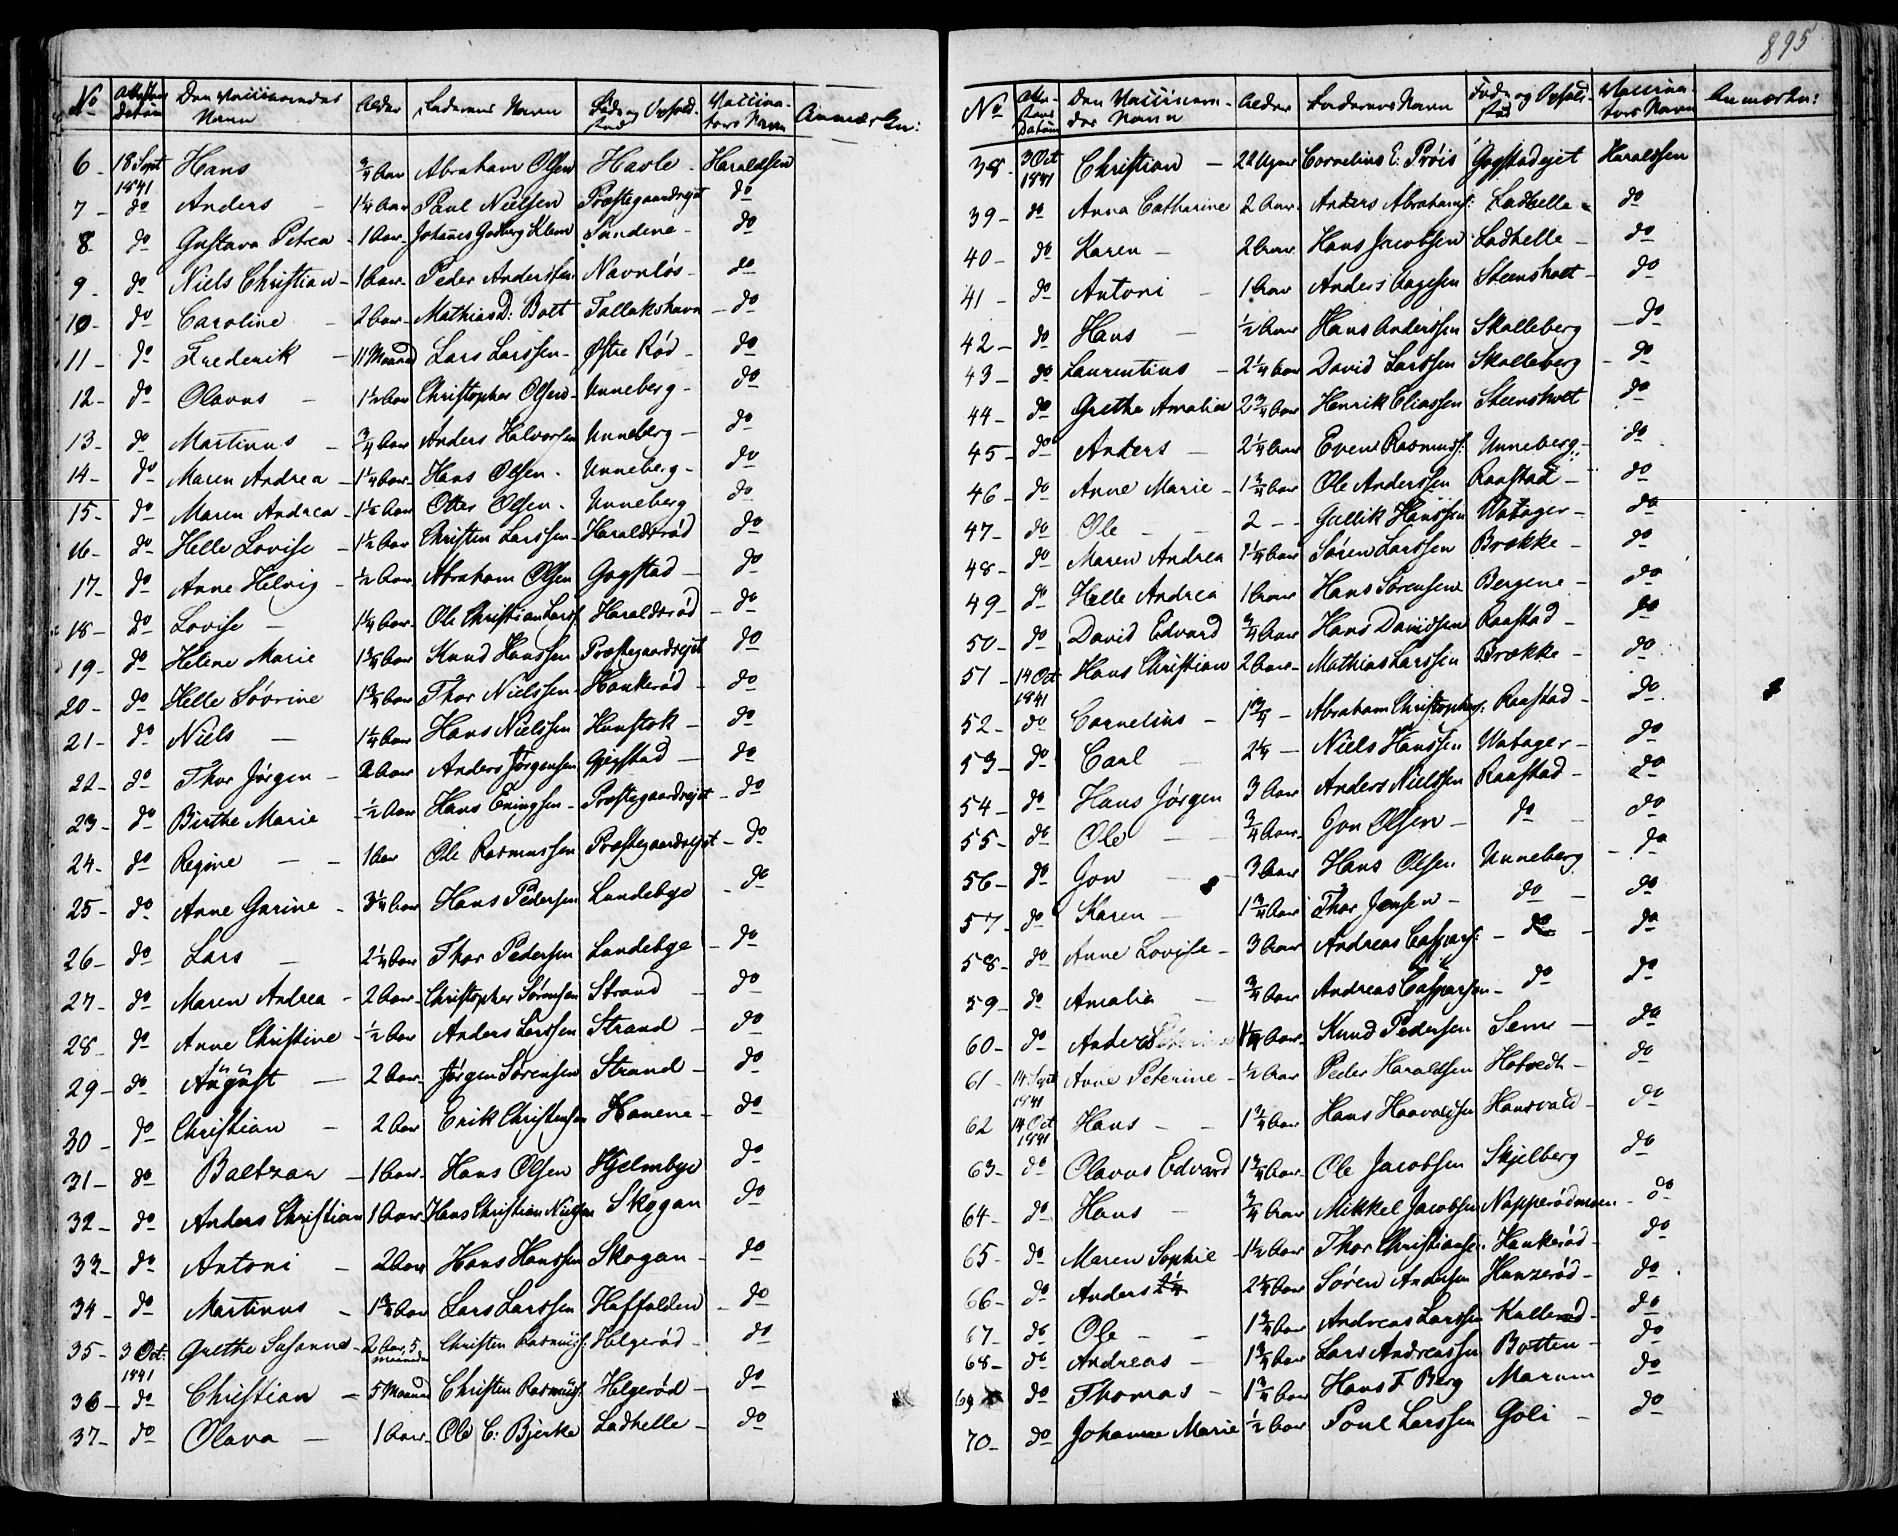 895
No | Attestens Datum | Den Vaccineredes Navn | Alder | Faderens Navn | Føde og Ophold-sted | Vaccina-tors Navn | Anmærkn:
6 - 18 Sept 1841 Hans 3/4 Aar Abraham Olsen Hasle - Haraldsen
7 - do Anders - 1 1/4 Aar Paul Nielsen Præstegaardsejet do
8 - do Gustava Petrea - 1 Aar - Johannes Klem Sundene - do
9 - do Niels Christian - 1 Aar - Peder Anderssen Navnløs - do
10 - do Caroline - 2 Aar - Mathias D: Bolt Tallakshavn - do
11 - do Frederik - 11 Maaned Lars Larssen - Østre Rød - do
12 - do Olavus - 1 1/2 Aar Christopher Olsen - Unneberg - do
13 - do Martinus - 3/4 Aar Anders Halvorsen Unneberg - do
14 - do Maren Andrea - 1 1/4 Aar - Hans Olsen - Unneberg - do
15 - do Maren Andrea - 1 1/2 Aar Otter Olsen - Unneberg do
16 - do Helle Lovise - 1 1/2 Aar Christen Larssen - Haraldsrød do
17 - do Anne Helvig - 1/2 Aar Abraham Olsen Gogstad - do
18 - do Lovise - 1 1/4 Aar - Ole Christian Larss: Haraldsrød - do
19 - do Helene Marie 1 3/4 Aar Knud Hanssen Præstegaardsejet do
20 - do Helle Sovrine 1 3/4 Aar Thor Nielssen - Haukerød - do
21 - do Niels - 1 1/4 Aar Hans Nielssen Haustok - do
22 - do Thor Jørgen - 2 Aar Anders Jørgensen Gjegstad - do
23 - do Birthe Marie 1/2 Aar Hans Eningsen - Præstegaardsejet - do
24 - do Regine - - 1 Aar Ole Rasmussen Præstegaardsejet - do
25 - do Anne Garine - 3 1/4 Aar Hans Pedersen Lundebye - do
26 - do Lars - 2 1/4 Aar Thor Pedersen Lundebye - do
27 - do Maren Andrea - 2 Aar - Christopher Sørensen Strand - do
28 - do Anne Christine - 1/2 Aar Anders Larssen Strand - do
29 - do August - 2 Aar - Jørgen Sørensen Strand - do
30 - do Christian - 2 Aar Erik Christensen Hanene - do
31 - do Baltzar - 1 Aar - Hans Olsen Hjelmbye do
32 - do Anders Christian 1 Aar - Hans Christian Nielsen Skogan do
33 - do Antoni - 2 Aar Hans Hanssen Skogan - do
34 - do Martinus - 1 3/4 Aar Lars Larssen Haffalden - do
35 - 3 Oct: 1841 Grethe Susanne - 2 Aar, 5 maaneder Christen Rasmus: Helgerød - do
36 - do Christian - 5 Maaned Christen Rasmus: Helgerød - do
37 - do Olava - 1 Aar - Ole C: Bjerke Ladhelle - do
No | Atte-stens Datum | Den Vaccinere-des Navn | Alder | Faderens Navn | Føde og Ophold-sted | Vaccina-tors Navn | Anmærkn:
38 - 3 Oct 1841 Christian - 22 Uger Cornelius E: Prøis Gogstadejet Haraldssen
39 - do Anna Catharine 2 Aar - Anders Abrahams: Ladhelle - do
40 - do Karen - 2 Aar Hans Jacobsen Ladhelle - do
41 - do Antoni - 1 Aar Anders Aagesen Steensholt - do
42 - do Hans - 1/2 Aar Hans Anderssen Skalleberg - do
43 - do Laurentius - 2 1/4 Aar David Larssen Skalleberg - do
44 - do Grethe Amalia 2 3/4 Aar Henrik Eliassen Steensholt do
45 - do Anders - 2 1/4 Aar Even Rasmuss: Unneberg - do
46 - do Anne Marie - 1 3/4 Aar Ole Anderssen Raastad - do
47 - do Ole - - 2 - - Gullik Hanssen Watager - do
48 - do Maren Andrea 1 1/4 Aar Søren Larssen Brække - do
49 - do Helle Andrea 1 Aar Hans Sørensen Bergene - do
50 - do David Edvard 3/4 Aar Hans Davidsen Raastad - do
51 - 14 Oct 1841 Hans Christian 2 Aar - Mathias Larssen Brække - do
52 - do Cornelius - 1 3/4 - Abraham Christophers: Raastad - do
53 - do Carl - 2 1/4 - Niels Hanssen Watager - do
54 - do Hans Jørgen 3 Aar Anders Nielssen Raastad - do
55 - do Ole - - 3/4 Aar - Jon Olsen - do - do
56 - do Jon - 3 Aar Hans Olsen Unneberg - do
57 - do Karen - 1 3/4 Aar Thor Jensen - do - do
58 - do Anne Lovise - 3 Aar Andreas Caspars: - do - do
59 - do Amalia - 3/4 Aar Andreas Casparsen - do do
60 - do Anders 1 1/4 Aar - Knud Pedersen Seme - do
61 - 14 Sept 1841 Anne Peterine - 1/2 Aar Peder Haraldsen Hotvedt - do
62 14 Oct 1841 Hans - - 1 3/4 Aar Hans Haavaldsen Hansvald - do
63 - do Olavus Edvard 1 3/4 Aar - Ole Jacobsen Skjelberg do
64 - do Hans - 3/4 Aar Mikkel Jacobsen Napperødmoen - do
65 - do Maren Sophie - 1 1/2 Aar Thor Christianse: Haukerød - do
66 - do Anders 2 1/4 2 1/4 Aar Søren Andersen Hunzerød - do
67 - do Ole - - 1 3/4 Aar Andreas Larssen Kullerød - do
68 - do Andreas - 1 3/4 Aar Lars Andreassen Botten - do
69 do Thomas - 1 3/4 Aar Hans F Berg Marum do
70 - do Johanne Marie 1/2 Aar Poul Larssen Goli - do